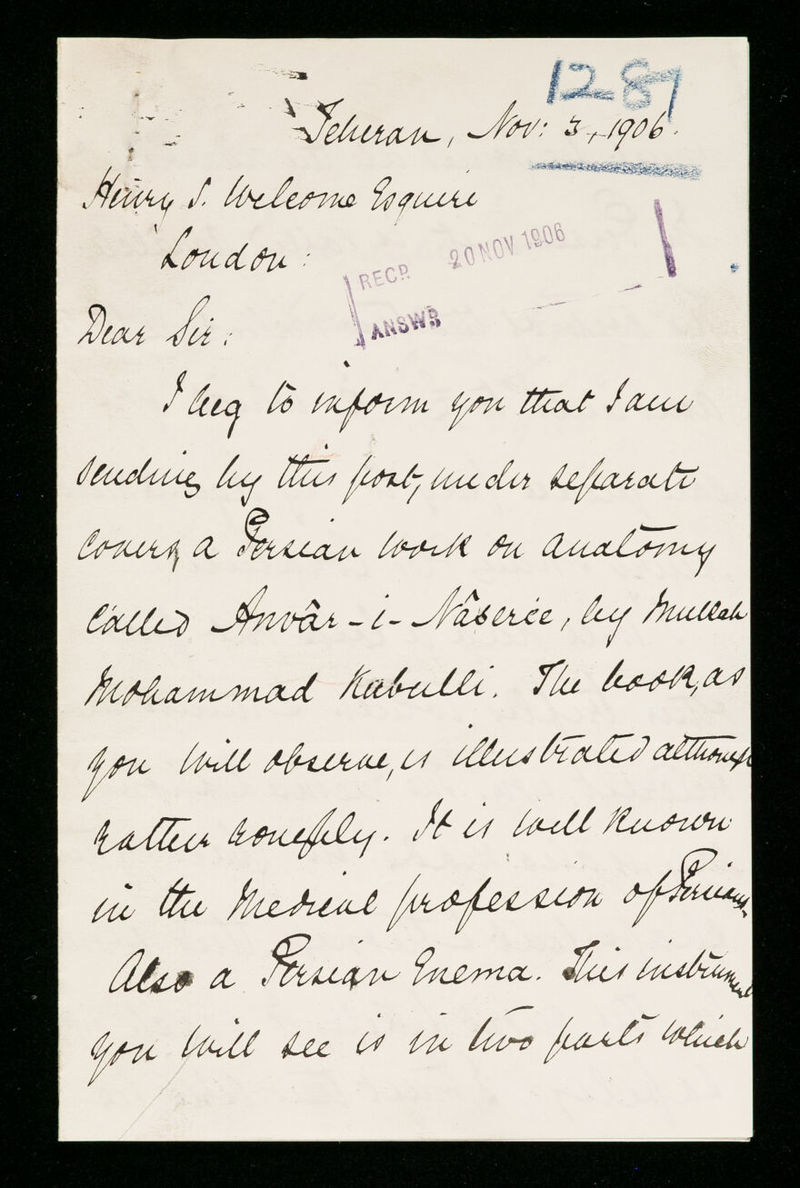 1287
Teheran, Nov: 3, 1906.
Henry S. Welcome Esquire
London:
RECD. 20 NOV 1906
ANSWD
Dear Sir:
I beg to inform you that I am
sending by this post, under separate
cover, a Persian work on anatomy
called Anvâr-i-Nâserée, by Mullah
Mohammad Kabulli. The book, as
you will observe, is illustrated although
rather roughly. It is well known
in the Medical profession of Persians.
Also a Persian Enema. This instrument
you will see is in two parts which